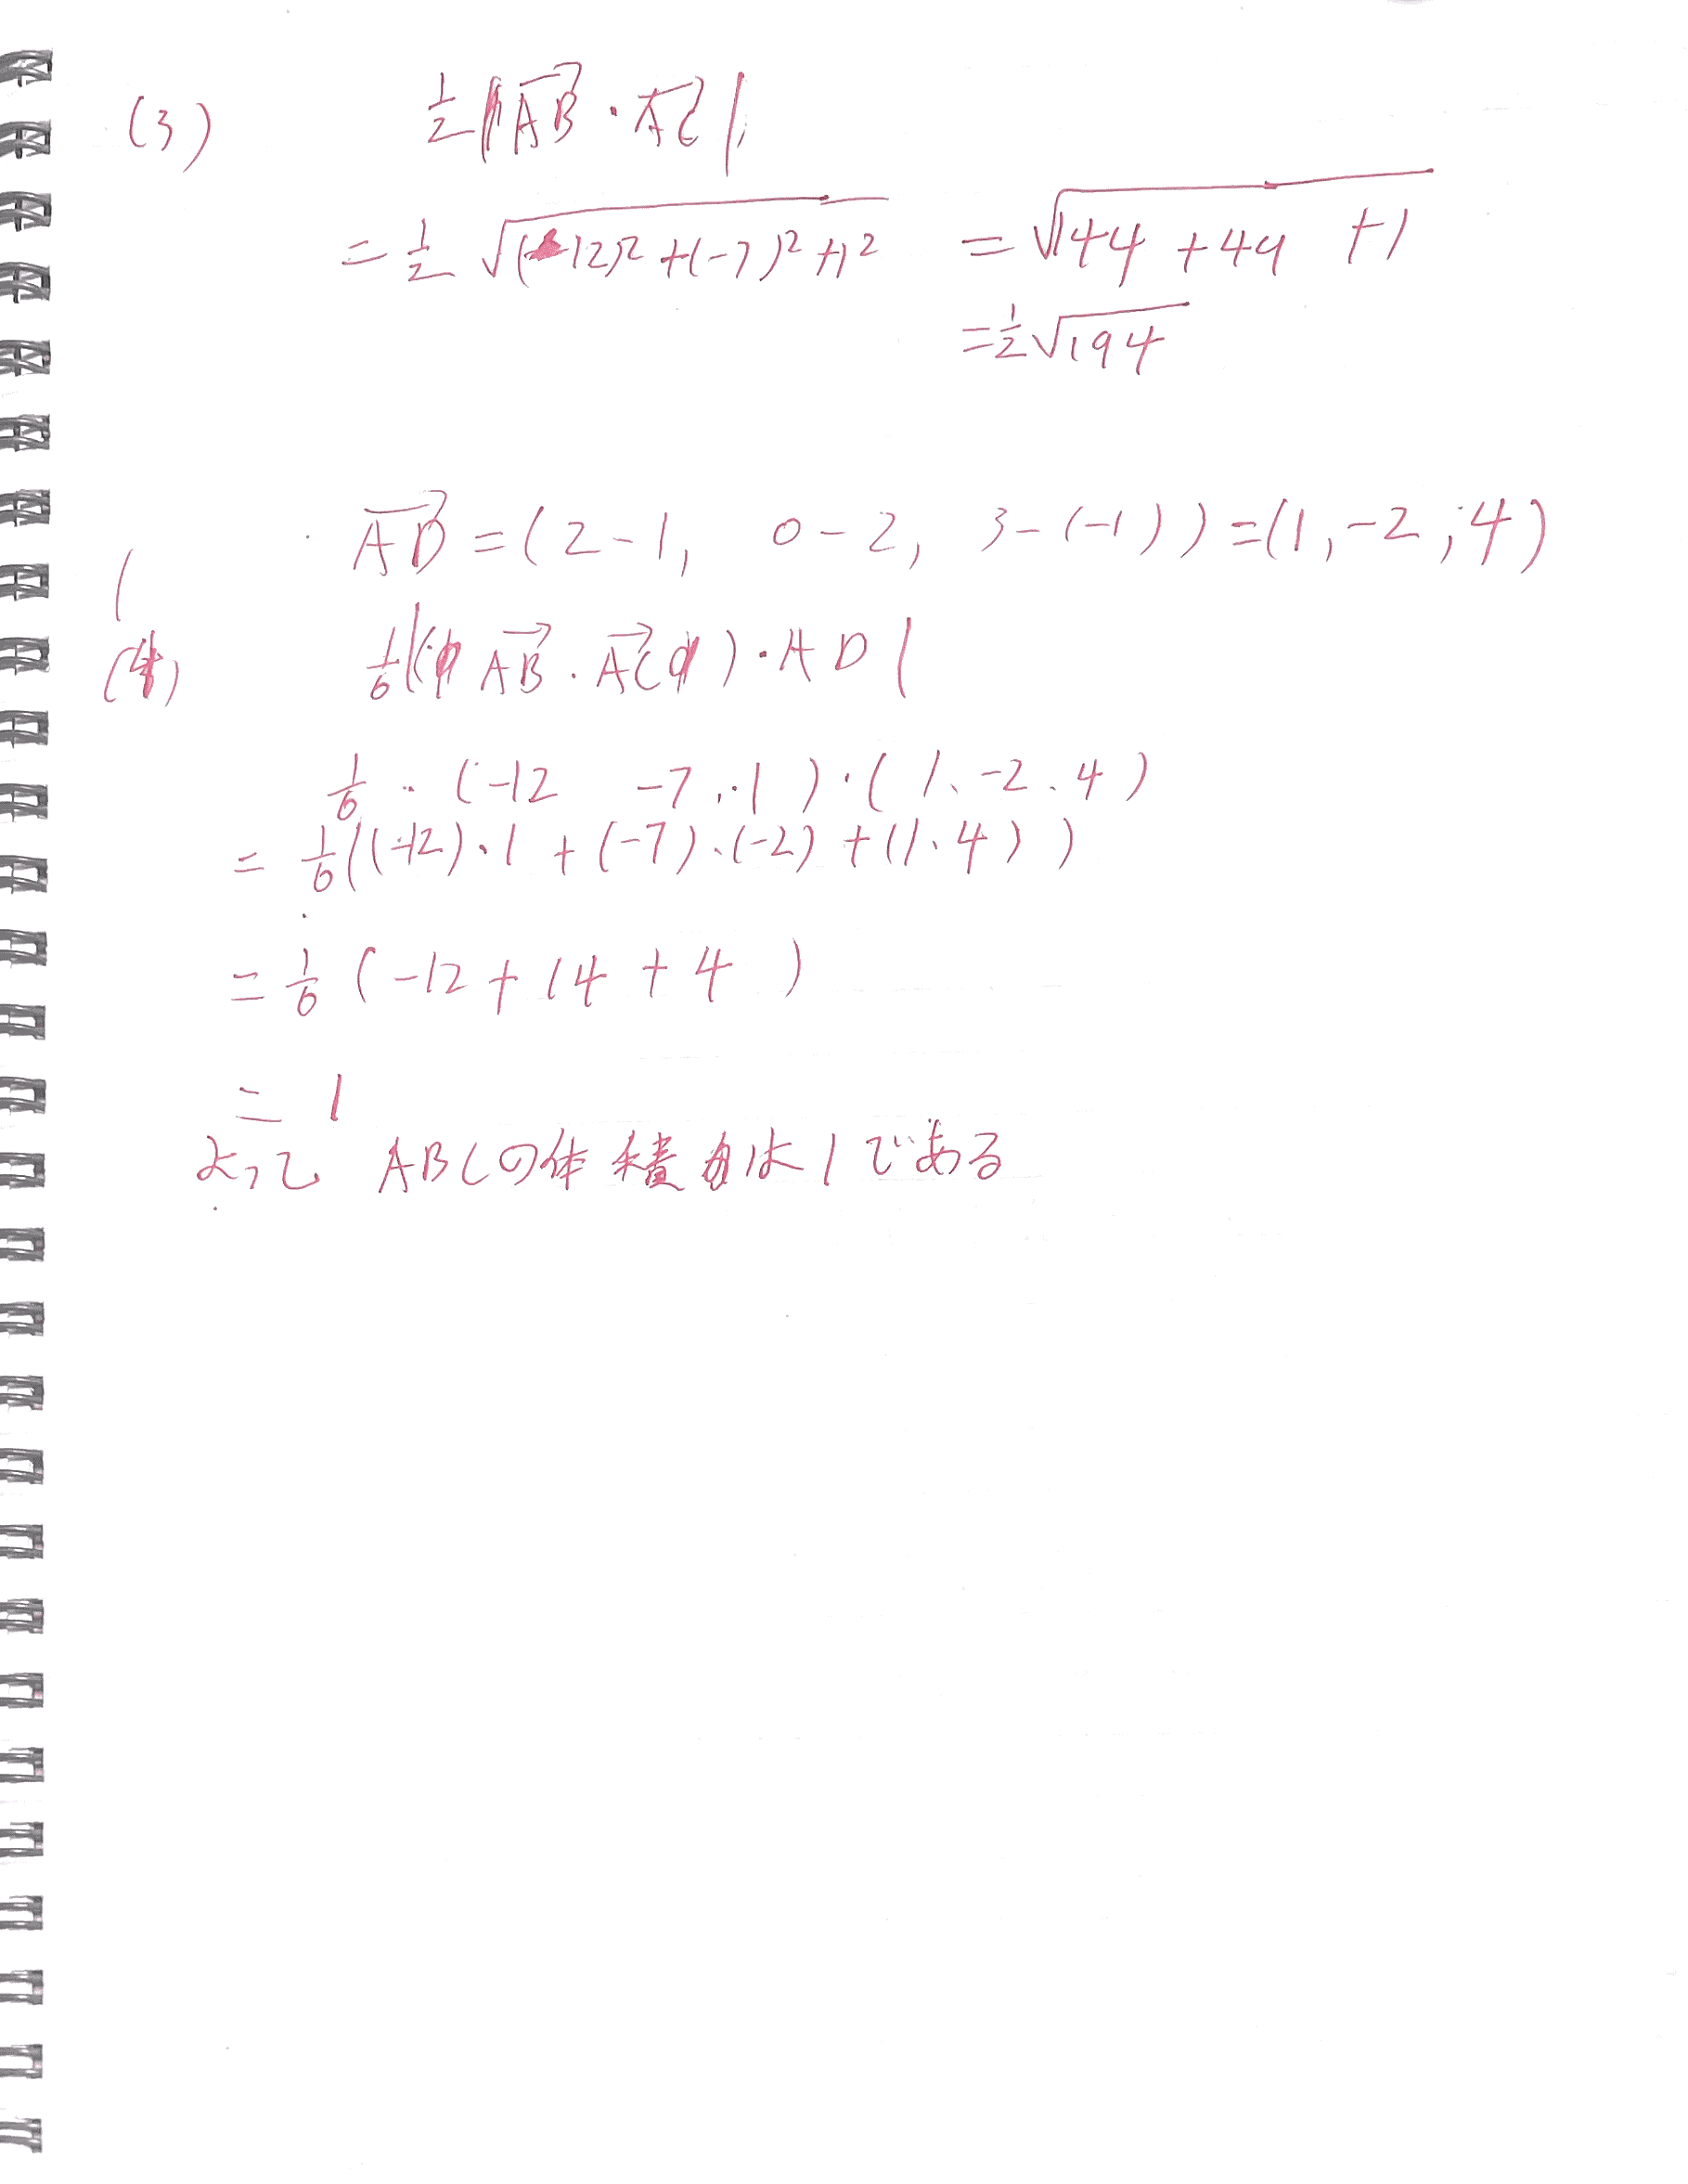 (3) 1/2 |AB→・AC→|
= 1/2 √((-12)2 +(-7)2 +12 = √144 +49 +1
= 1/2 √194
AD→ = (2-1, 0-2, 3-(-1)) = (1, -2, 4)
(4) 1/6 |(AB→・AC→)・AD|
1/6 ・(-12 -7 ・1)・(1、-2、4)
= 1/6((-12)・1 + (-7)・(-2) + (1・4))
= 1/6 (-12 + 14 + 4)
= 1
よって ABCの体積は1である